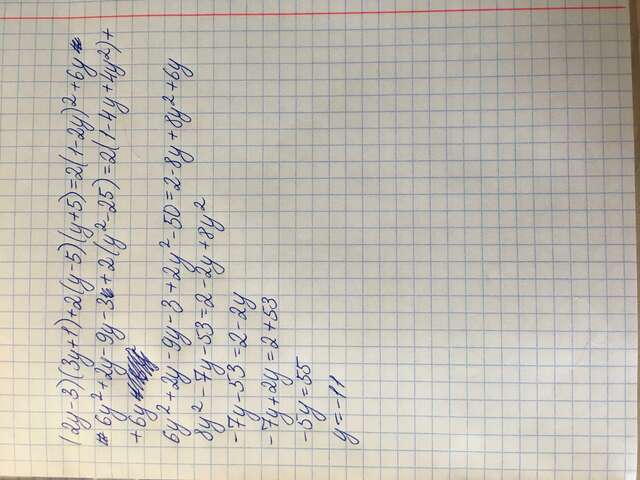 (2y-3)(3y+1)+2(y-5)(y+5)=2(1-2y)²+6y
6y²+2y-9y-3+2(y²-25)=2(1-4y+4y²)+
+6y
6y²+2y-9y-3+2y²-50=2-8y+8y²+6y
8y²-7y-53=2-2y+8y²
-7y-53=2-2y
-7y+2y=2+53
-5y=55
y=-11